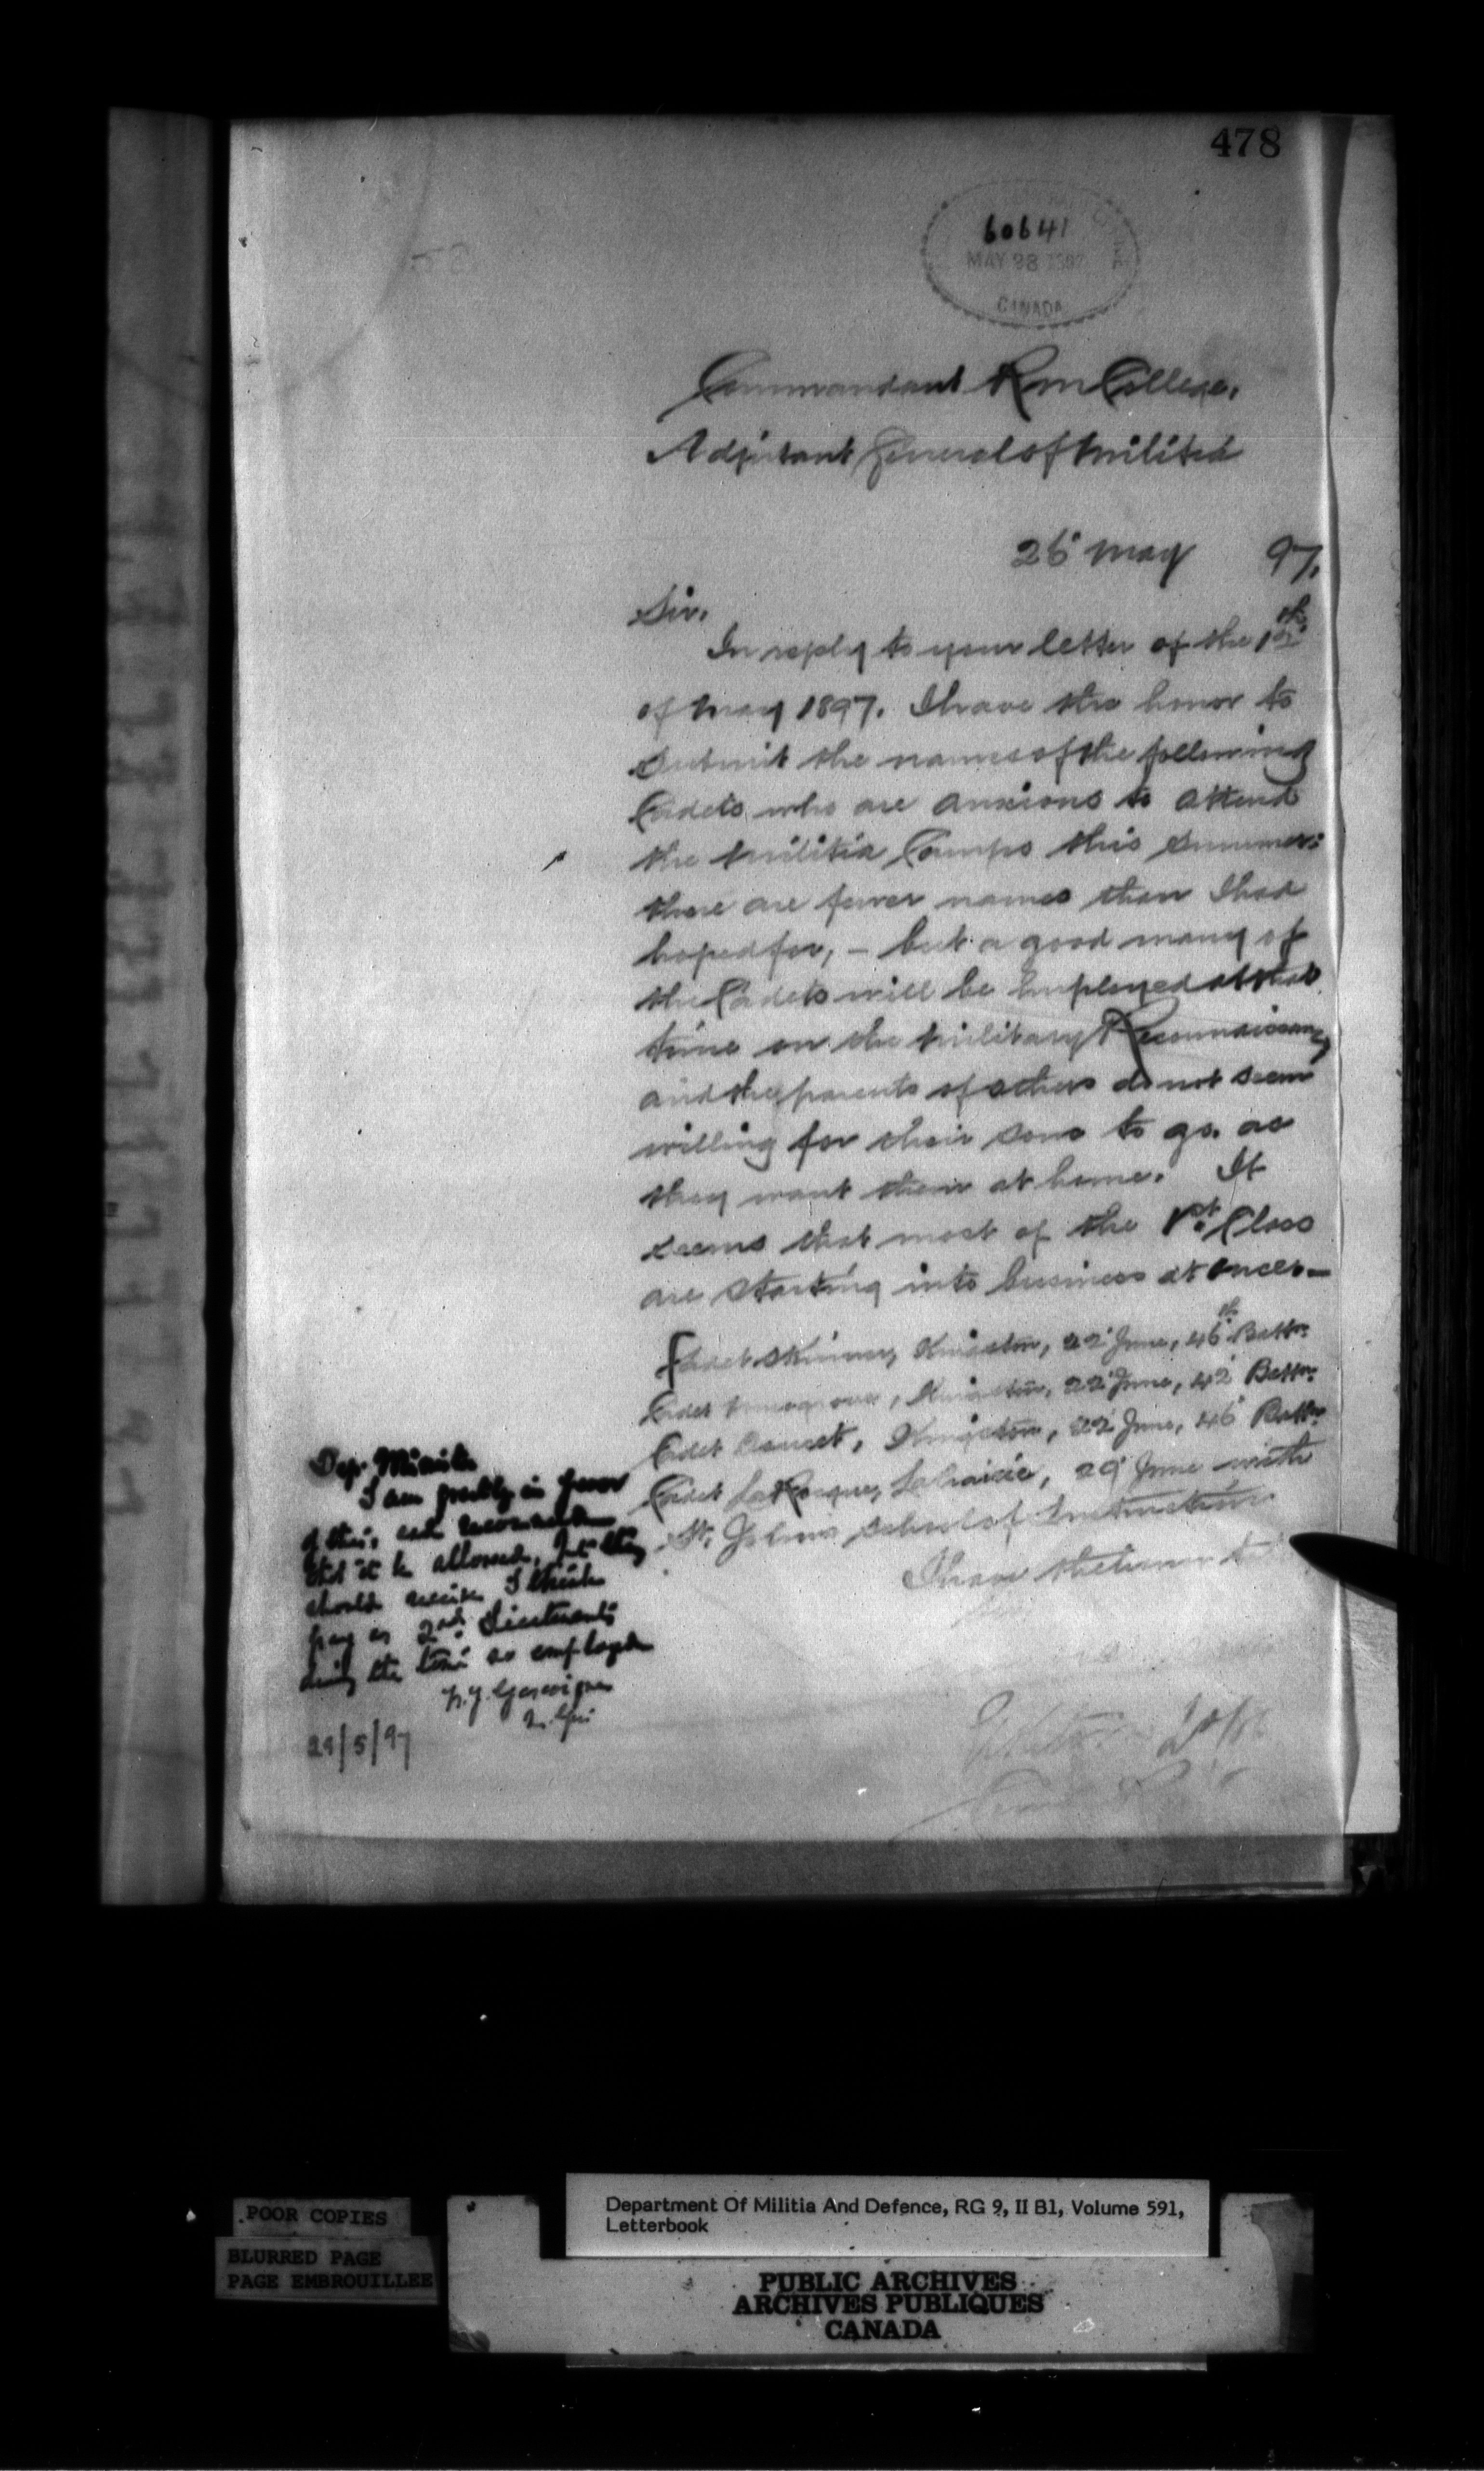 478
60641
MAY 28 1897
CANADA
Commandant R M College.
Adjutant General of Militia
26 May 97.
Sir.
In reply to your letter of the
of May 1897. I have the honor to
submit the names of the following
Cadets who are anxious to attend
the Militia Camps this summer:
there are fewer names than I had
hoped for, – but a good many of
the Cadets will be employed at that
time on the Military Reconnaissance,
and the parents of others do not seem
willing for their sons to go. as
they want them at home. It
seems that most of the 1st. Class
are starting into business at once. –
Cadet Skinner, Kingston, 22 June, 46th Battn.
Cadet Kingston, 22 June, 42 Battn.
Cadet Doucet, Kingston, 22 June, 46 Battn.
Cadet LaRocque, Laprairie, 29 June with
St. Johns School of Instruction
I have the honor to
Dep. Minister
I am greatly in favor
of this, and recommend
that it be allowed, & they
should receive I think
pay as 2nd. Lieutenants
during the time so employed
Gascoigne
M. Gen
29/5/97
POOR COPIES
BLURRED PAGE
PAGE EMBROUILLEE
Department Of Militia And Defence, RG 9, II B1, Volume 591,
Letterbook
PUBLIC ARCHIVES
ARCHIVES PUBLIQUES
CANADA